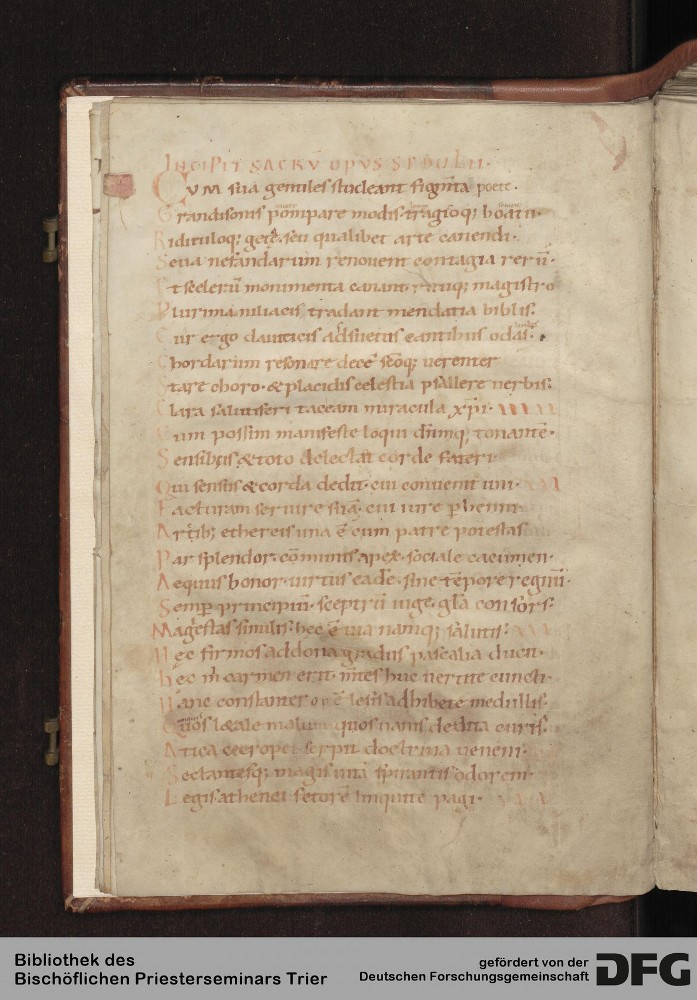 INCIPIT SACRV OPVS SEDULII·
CVM sua gentiles studeant figmta poete·
Grandisonis pompare modis· tragicoq; boatu·
Ridiculoq; gete seu qualibet arte canendi·
Seua nefandarum renouent contagia rerū·
Et scelerū monumenta canant· rituq; magistro
Plurima niliacis tradant mendatia biblis:
Cur ergo dauiticis adsuetus cantibus odas·
Chordarum resonare decē scōq; uerenter
Stare choro· & placidis celestia psallere uerbis:
Clara salutiferi taceam miracula xp̄i·
Cum possim manifeste loqui dn̄mq; tonantē·
Sensib; & toto delectat corde fateri·
Qui sensus & corda dedit· cui conuenit uni·
Facturam seruire suā· cui iure phenni·
Artib; ethereis una ē cum patre potestas
Par splendor· cōmunis apex· sociale cacumen·
Aequus honor· uirtus eadē· sine tēpore regnū·
Semp principiū· sceptrū iuge· gla consors·
Magestas similis: hec ē uia namq; salutis:
Hec firmos ad dona gradus paschalia ducit·
Hec m̄ carmen erit· m̄tes huc uertite cuncti·
Hanc constanter opē lesis adhibete medullis·
Quos letale malum· quos uanis dedita curis·
Atica cecropei serpit doctrina ueneni·
Sectantesq; magis uitā spirantis odorem·
Legis athenei fetorē linquite pagi·
Bibliothek des
Bischöflichen Priesterseminars Trier
gefördert von der
Deutschen Forschungsgemeinschaft
DFG